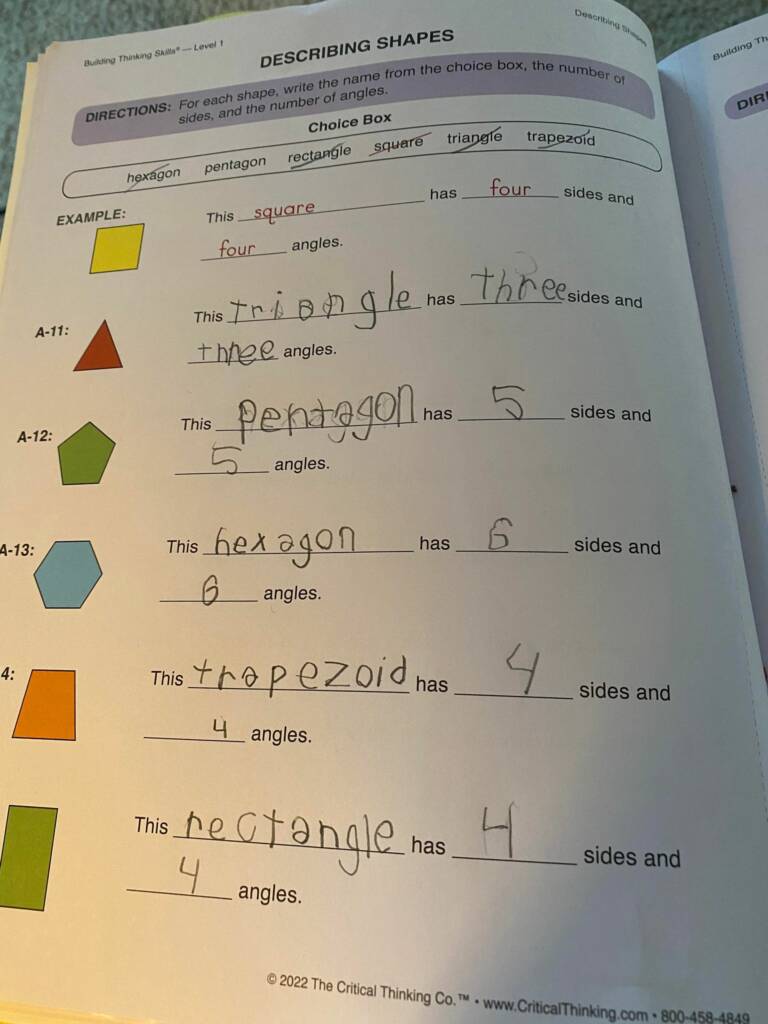 Building Thinking Skills® — Level 1
Describing Shapes
DESCRIBING SHAPES
DIRECTIONS: For each shape, write the name from the choice box, the number of
sides, and the number of angles.
Choice Box
hexagon pentagon rectangle square triangle trapezoid
EXAMPLE:
This square has four sides and
four angles.
A-11:
This triangle has three sides and
three angles.
A-12:
This pentagon has 5 sides and
5 angles.
A-13:
This hexagon has 6 sides and
6 angles.
4:
This trapezoid has 4 sides and
4 angles.
This rectangle has 4 sides and
4 angles.
© 2022 The Critical Thinking Co.™ • www.CriticalThinking.com • 800-458-4849
Building Th
DIR